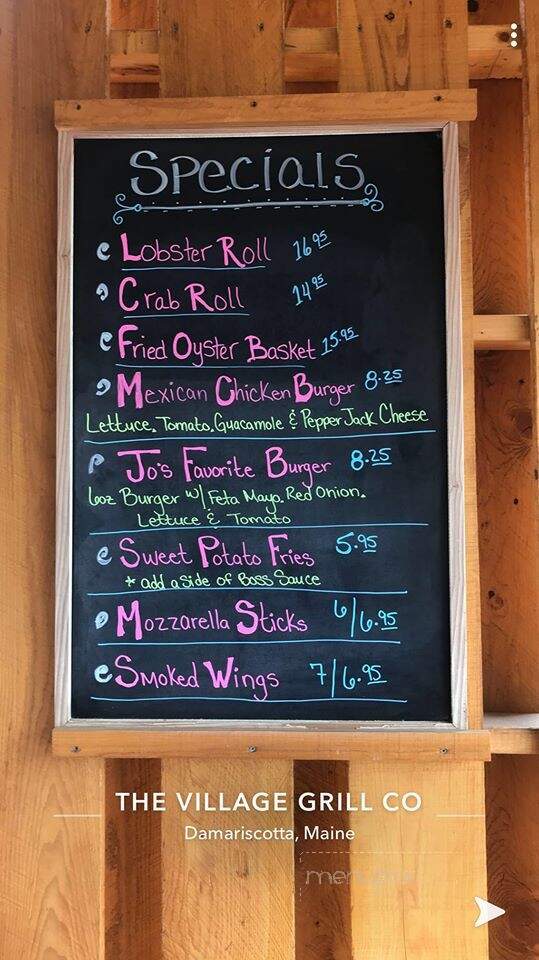 Specials
Lobster Roll 16 95
Crab Roll 14 95
Fried Oyster Basket 15.95
Mexican Chicken Burger 8.25
Lettuce, Tomato, Guacamole & Pepper Jack Cheese
Jo's Favorite Burger 8.25
6oz Burger w/ Feta Mayo, Red Onion,
Lettuce & Tomato
Sweet Potato Fries 5.95
* add a side of Boss Sauce
Mozzarella Sticks 6/6.95
Smoked Wings 7/6.95
THE VILLAGE GRILL CO
Damariscotta, Maine